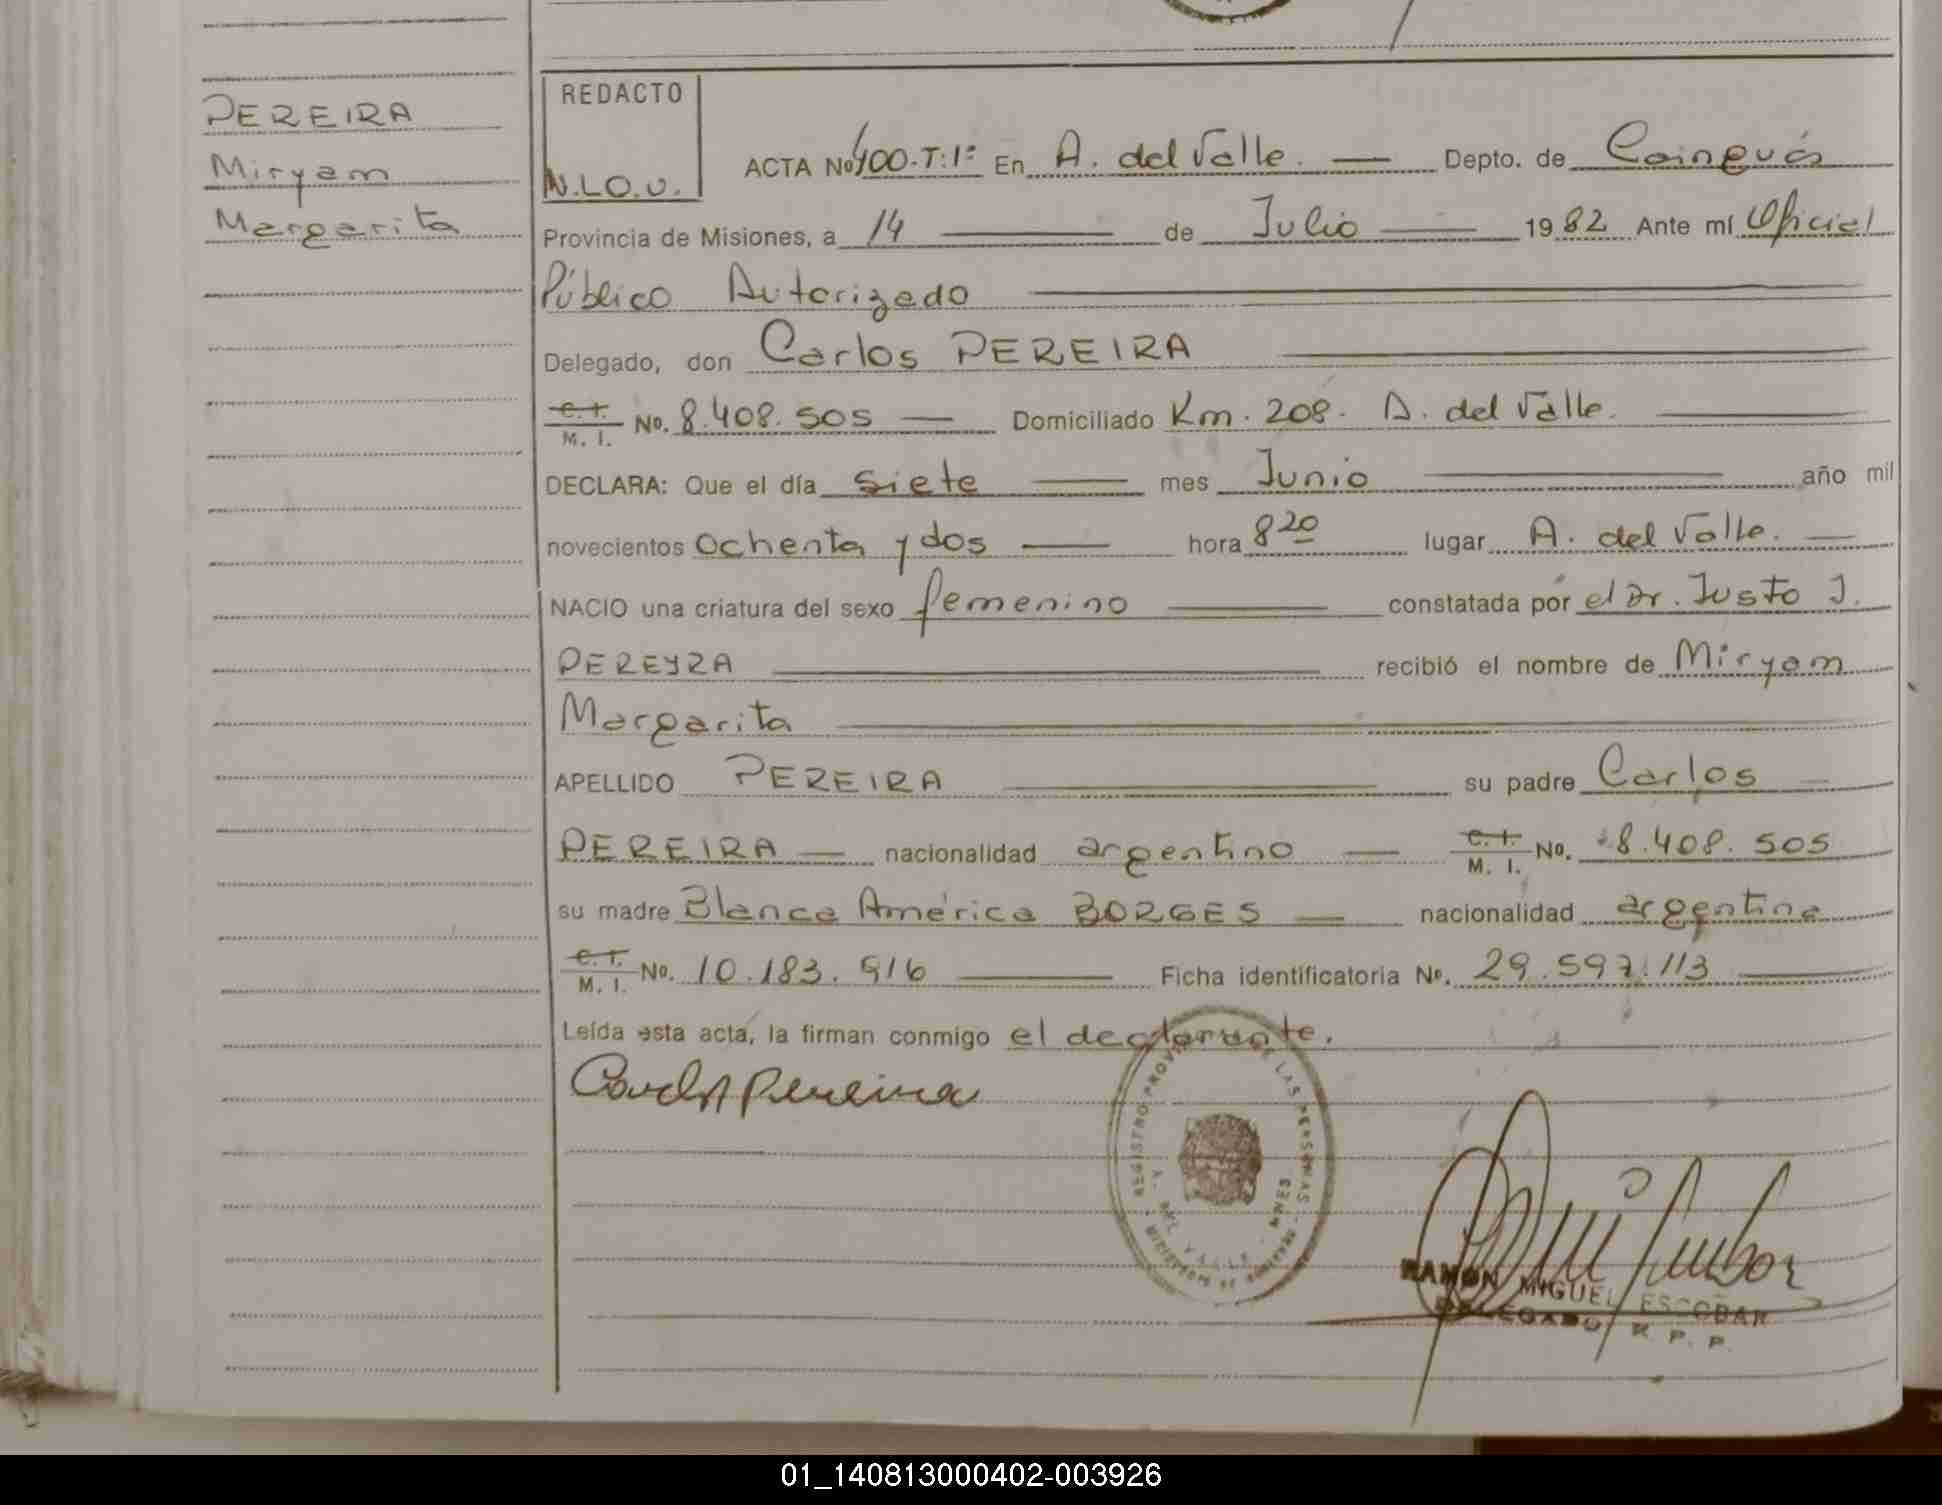 PEREIRA
Miryam
Margarita
REDACTO
N.L.O.U.
ACTA No 400-T:1º En A. del Valle. — Depto. de Cainguás
Provincia de Misiones, a 14 — de Julio — 1982 Ante mí Oficial
Público Autorizado
Delegado, don Carlos PEREIRA
C. I. / M. I. No. 8.408.505 — Domiciliado Km. 208. A. del Valle.
DECLARA: Que el día siete — mes Junio — año mil
novecientos ochenta y dos — hora 8 20 lugar A. del Valle. —
NACIO una criatura del sexo femenino — constatada por el Dr. Justo J.
PEREYRA — recibió el nombre de Miryam
Margarita
APELLIDO PEREIRA — su padre Carlos —
PEREIRA — nacionalidad argentino — C. I. / M. I. No. 8.408.505
su madre Blanca América BORGES — nacionalidad argentina
C. I. / M. I. No. 10.183.916 — Ficha identificatoria No. 29.597.113 —
Leída esta acta, la firman conmigo el declarante.
Carlos Pereira
REGISTRO PROVINCIAL DE LAS PERSONAS
A. DEL VALLE - MNES
MINISTERIO DE GOBIERNO
RAMON MIGUEL ESCOBAR
DELEGADO R. P. P.
01_140813000402-003926